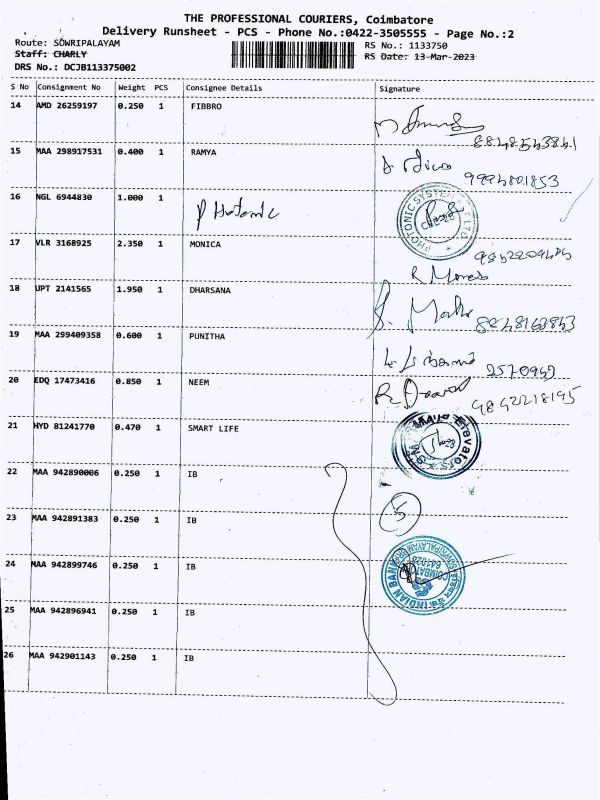 THE PROFESSIONAL COURIERS, Coimbatore
Delivery Runsheet - PCS - Phone No.:0422-3505555 - Page No.:2
Route: SOWRIPALAYAM
RS No.: 1133750
Staff: CHARLY
RS Date: 13-Mar-2023
DRS No.: DCJB113375002
S No Consignment No Weight PCS Consignee Details Signature
14 AMD 26259197 0.250 1 FIBBRO
15 MAA 298917531 0.400 1 RAMYA
9994801853
16 NGL 6944830 1.000 1
PHOTONIC SYSTEM
17 VLR 3168925 2.350 1 MONICA
18 UPT 2141565 1.950 1 DHARSANA
19 MAA 299409358 0.600 1 PUNITHA
20 EDQ 17473416 0.850 1 NEEM
9842218195
21 HYD 81241770 0.470 1 SMART LIFE
Elevators
22 MAA 942890006 0.250 1 IB
23 MAA 942891383 0.250 1 IB
5
24 MAA 942899746 0.250 1 IB
INDIAN BANK
25 MAA 942896941 0.250 1 IB
26 MAA 942901143 0.250 1 IB